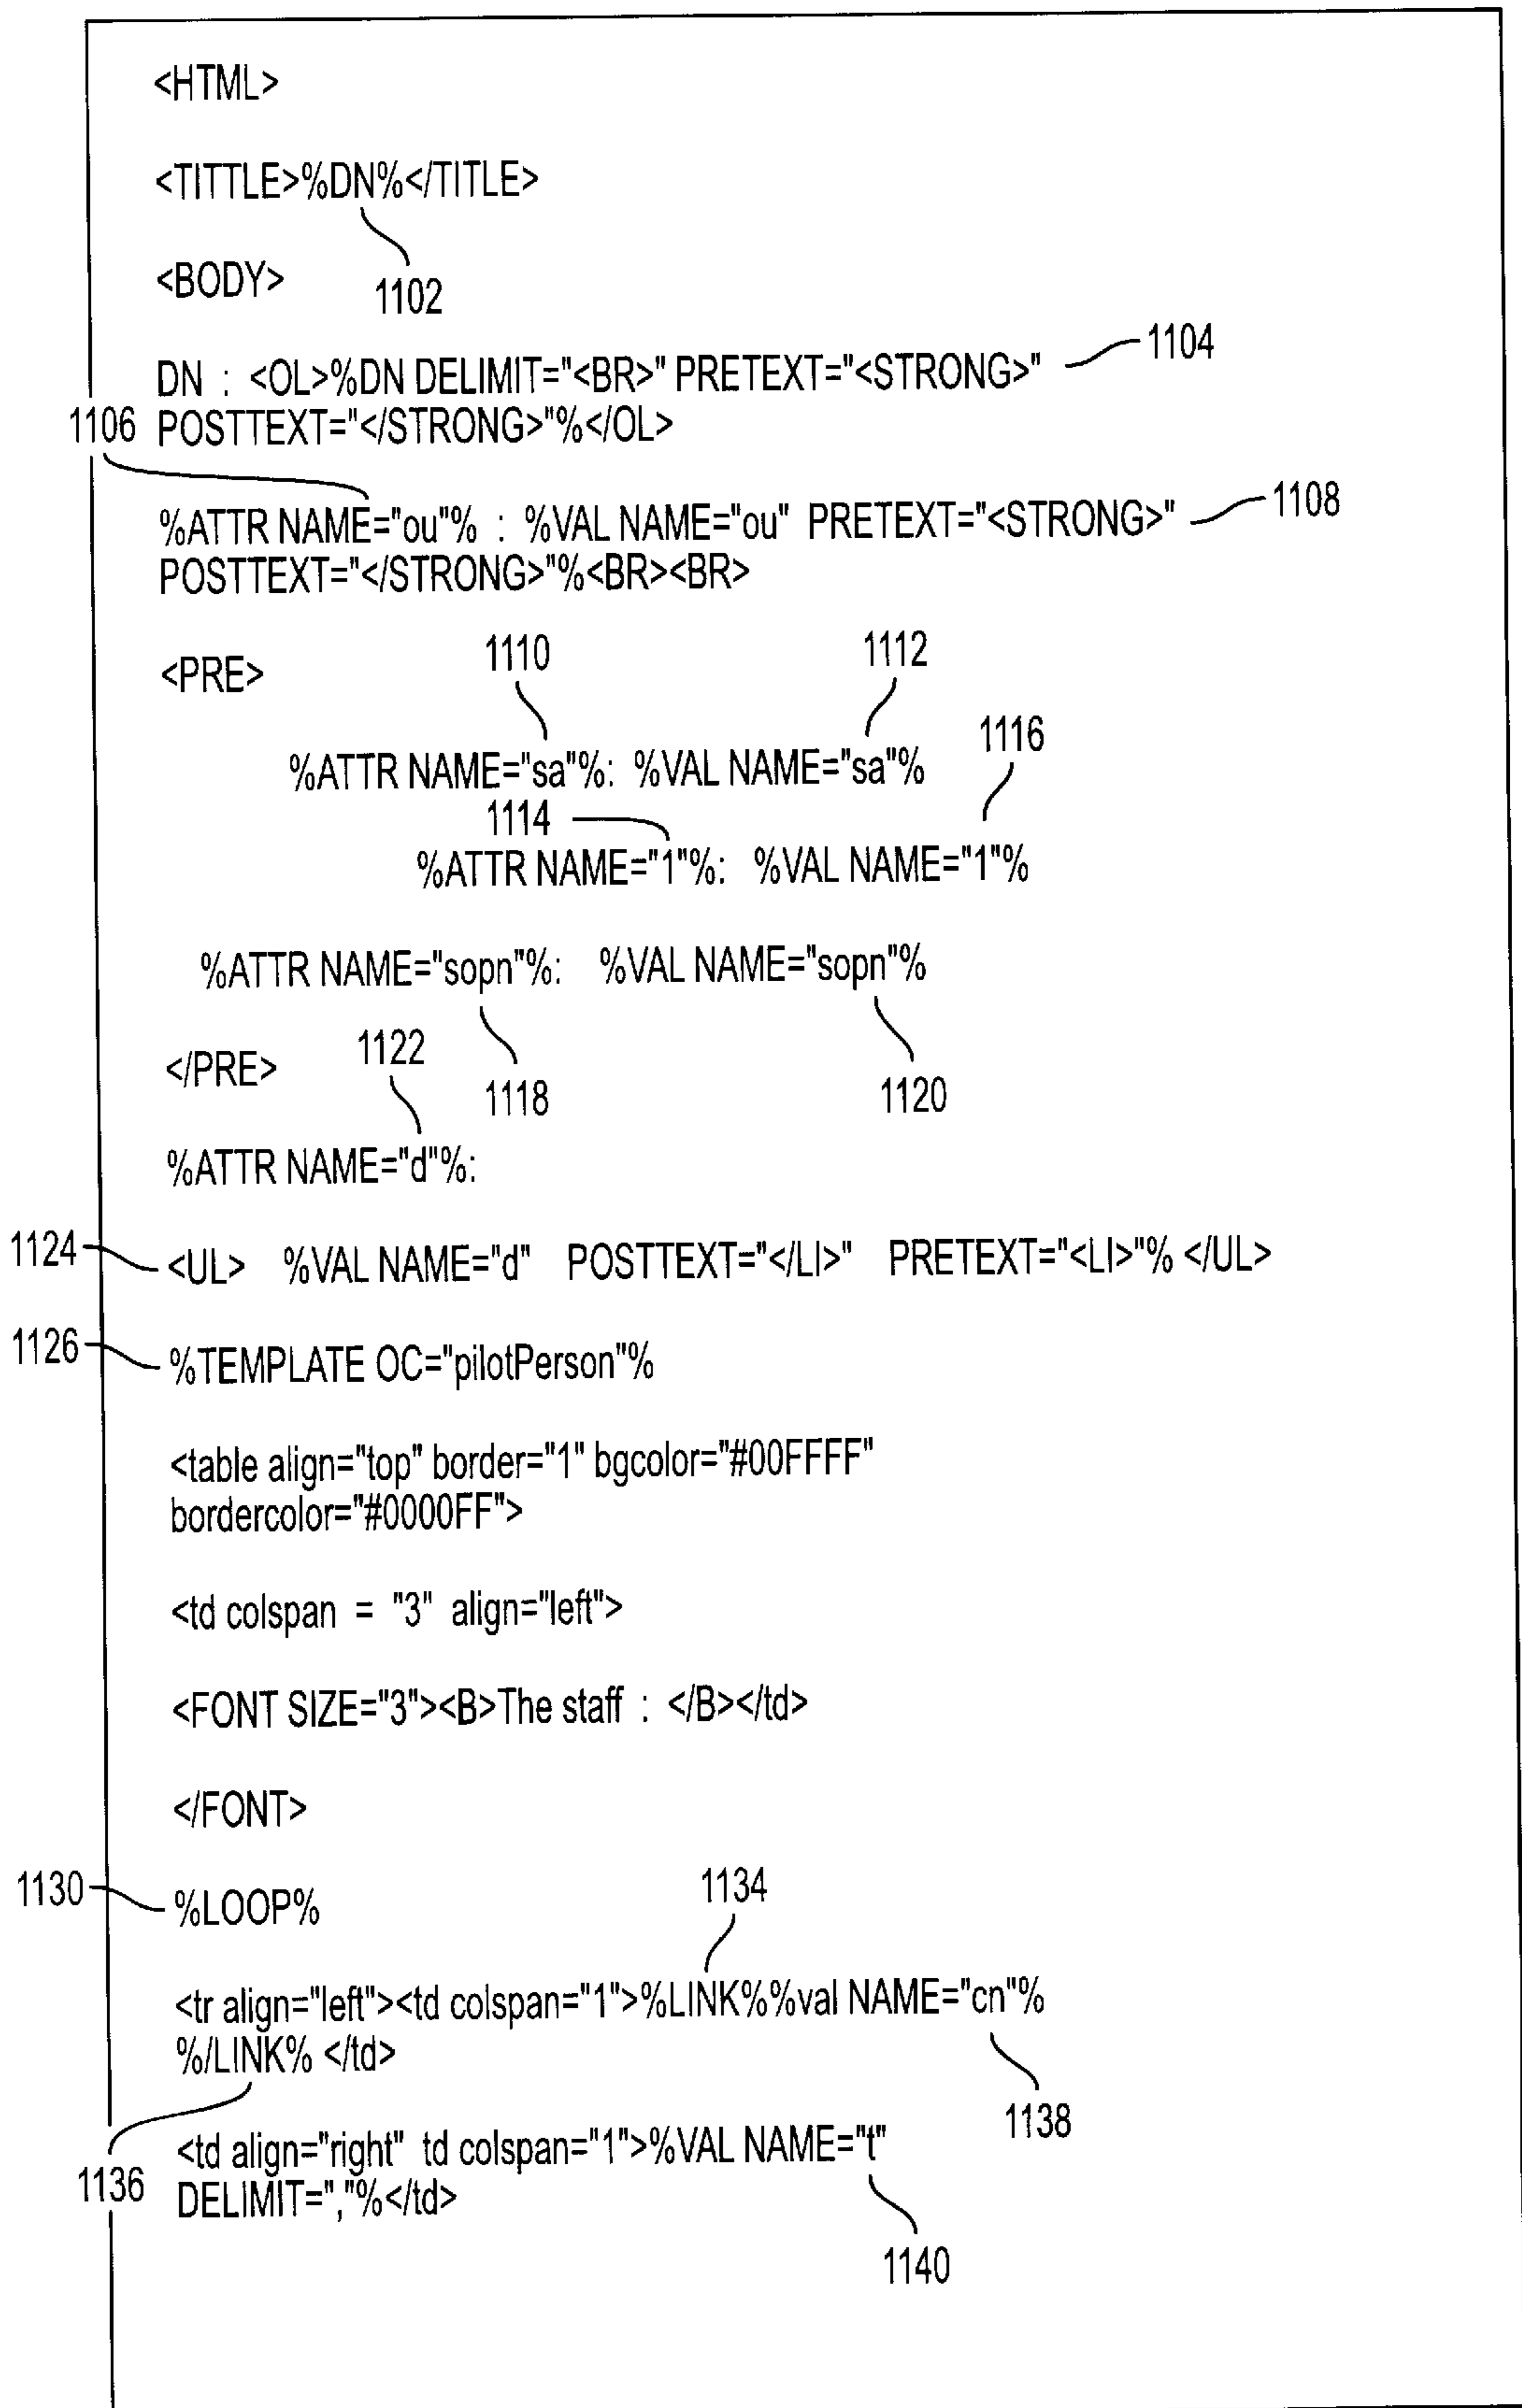 <HTML>
<TITTLE>%DN%</TITLE>
<BODY>
1102
DN : <OL>%DN DELIMIT="<BR>" PRETEXT="<STRONG>"
1104
1106
POSTTEXT="</STRONG>"%</OL>
%ATTR NAME="ou"% : %VAL NAME="ou" PRETEXT="<STRONG>"
1108
POSTTEXT="</STRONG>"%<BR><BR>
<PRE>
1110
1112
1116
%ATTR NAME="sa"%: %VAL NAME="sa"%
1114
%ATTR NAME="1"%: %VAL NAME="1"%
%ATTR NAME="sopn"%: %VAL NAME="sopn"%
</PRE>
1122
1118
1120
%ATTR NAME="d"%:
1124
<UL> %VAL NAME="d" POSTTEXT="</LI>" PRETEXT="<LI>"% </UL>
1126
%TEMPLATE OC="pilotPerson"%
<table align="top" border="1" bgcolor="#00FFFF"
bordercolor="#0000FF">
<td colspan = "3" align="left">
<FONT SIZE="3"><B>The staff : </B></td>
</FONT>
1130
%LOOP%
1134
<tr align="left"><td colspan="1">%LINK%%val NAME="cn"%
%/LINK% </td>
1138
<td align="right" td colspan="1">%VAL NAME="t"
1136
DELIMIT=","%</td>
1140